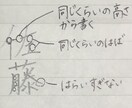 同じくらいの高さ
から書く
同じくらいのはば
佐
藤
はらいすぎない